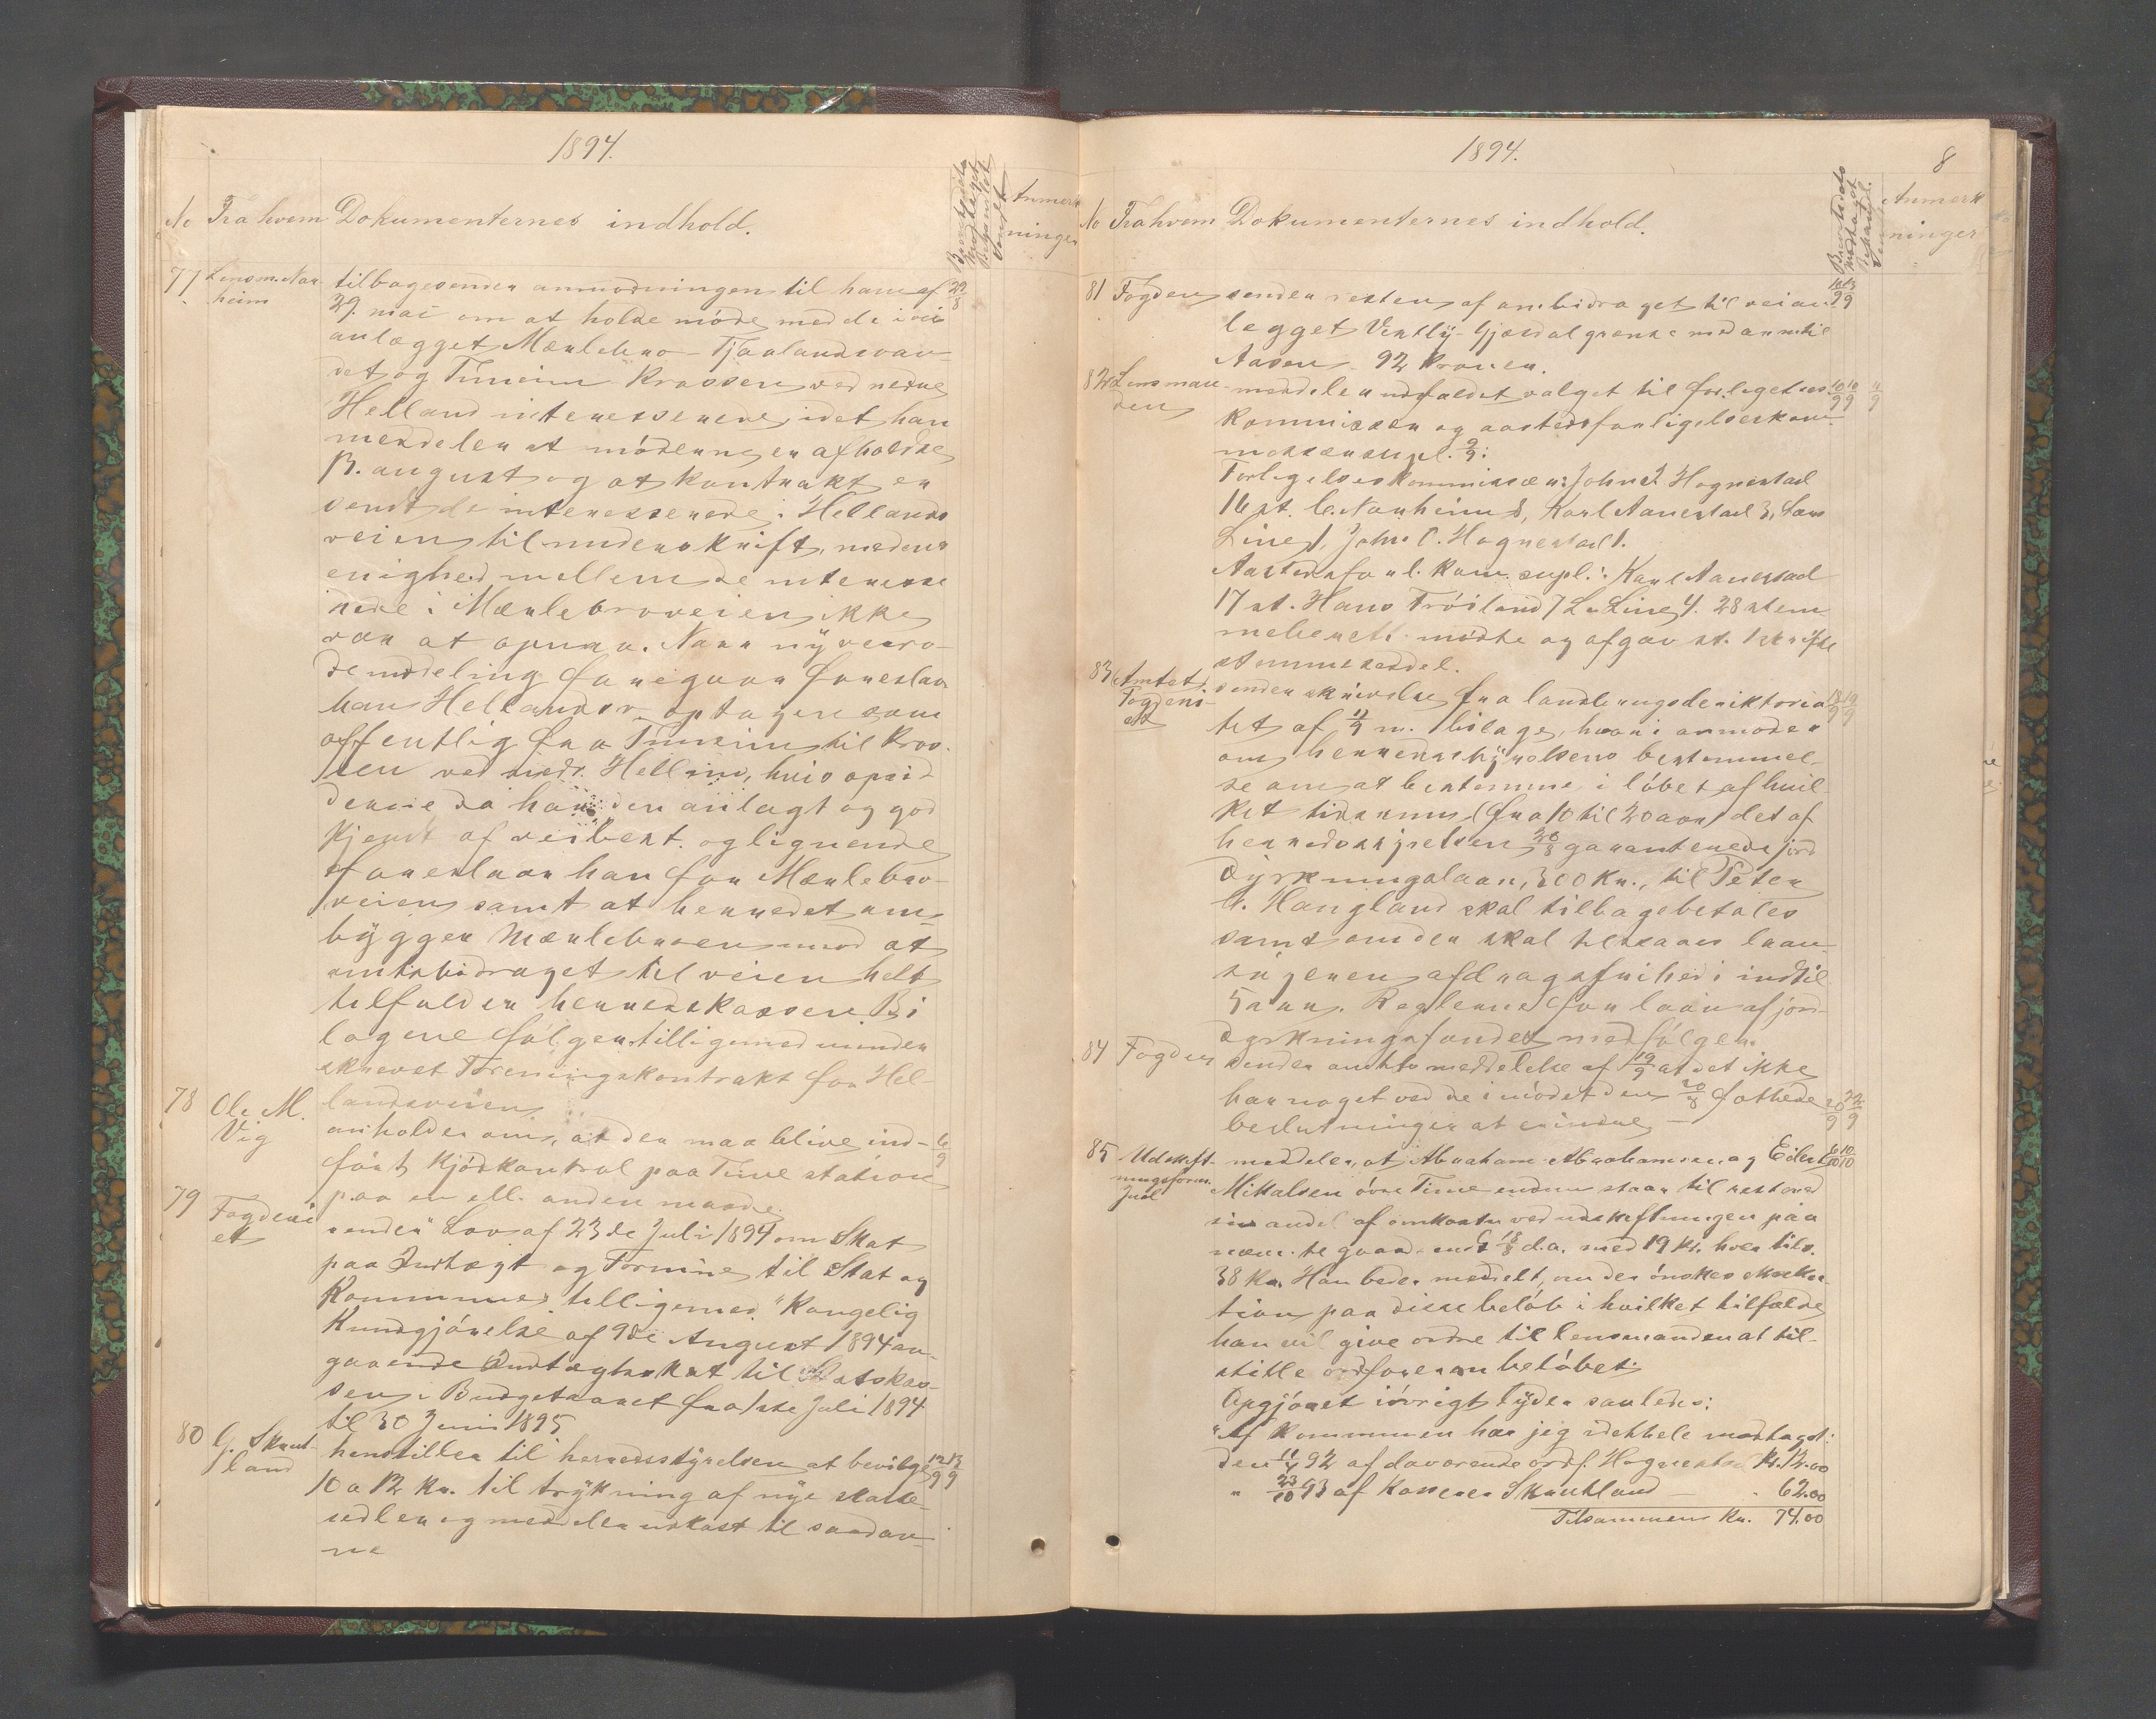 1894.
No Fra hvem Dokumenternes indhold.
Brevets dato
Modtaget
Behandlet
Sendt
Anmerk
ninger
77 Lensm. Nar-
heim
tilbagesender anmodningen til ham af 29/8
29. mai om at holde møde med de i vei
anlægget Mærlebro - Tjaalandsvan-
det og Timeim Krossen ved nedre
Helland interesserede, idet han
meddeler at møderne er afholdte
13. august og at kontrakt er
sendt de interesserede i Hellands
veien til underskrift, medens
enighed mellem de interesse
rede i Mærlebroveien ikke
var at opnaa. Naar ny veiro-
demodeling foregaar foreslaar
han Hellandsv. optagen som
offentlig fra Timeim til Kros-
sen ved nedr. Helland, hvis opsid-
derne da har den anlagt og god
kjendt af veibest. og lignende
foreslaar han for Mærlebro-
veien samt at herredet om-
bygger Mærlebroen mod at
amtsbidraget til veien helt
tilfalder herredskassen. Bi
lagene følger tilligemed under
skrevet Foreningskontrakt for Hel-
landsveien.
78 Ole M.
Vig
anholder om, at der maa blive ind- 6/9
ført kjødkontrol paa Time station
paa en ell. anden maade.
79 Fogderi
et
sender "Lov af 23de Juli 1894 om Skat
paa Indtægt og Formue til Stat og
Kommune, tilligemed "Kongelig
Kundgjørelse af 9de August 1894 an-
gaaende Indtægtsskat til Statskas-
sen i Budgetaaret fra 1ste Juli 1894
til 30 Juni 1895
80 G. Skret-
land
henstiller til herredsstyrelsen at bevilge 12/9 12/9
10 a 12 kr. til trykning af nye skatte-
sedler og meddeler udkast til saadan-
ne
1894.
8
No Fra hvem Dokumenternes indhold.
Brevets dato
Modtaget
Behandl.
Sendt
Anmerk
ninger
81 Fogden sender resten af ambidraget til veian
legget Vestly - Gjesdal grense med anm. til
Aasen - 92 Kroner.
82 Lensman
den
meddeler udfaldet valget til forligelses 10/9 10/9 11/9
Kommissær og aastedsforligelseskom-
missærsupl. 9/9:
Forligelseskommissær: John J. Hognestad
16 st. C. Narheim 8, Karl Aanestad 3, Lars
Line 1, John C. Hognestad 1.
Aastedsforl. kom. supl.: Karl Aanestad
17 st. Hans Frøiland 7 L. Line 4. 28 stem
meberett. mødte og afgav st. 1 skrifte
stemmeseddel.
83 Amtet
Fogderi-
et
sender skrivelse fra landbrugsdirektoria 18/9 19/9
tet af 11/9 m. bilage, hvori anmodes
om herredsstyrelsens bestemmel-
se om at bestemme i løbet af hvil-
ket tidsrum (fra 10 til 20 aar) det af
herredsstyrelsen 20/8 garanterede jord
dyrkningslaan, 300 Kr., til Peter
A. Haugland skal tilbagebetales
samt om der skal tilstaaes laan-
søgeren afdragsfrihed i indtil
5 aar. Reglerne for laan af jord-
dyrkningsfondet medfølger.
84 Fogden sender amtets meddelelse af 19/9 at det ikke
har noget ved de i mødet den 20/8 fattede 20/9 22/9
beslutninger at erindre. —
85 Udskift-
ningsform.
Juel
meddeler, at Abraham Abrahamsen og Eilert 6/10 10/10
Mikalsen øvre Time endnu staar til rest med
sin andel af omkostn. ved udskiftningen paa
nævnte gaard - indt. 18/8 d.a. med 19 kr. hver tils.
38 Kr. Han beder meddelt, om der ønskes ekseku-
tion paa disse beløb i hvilket tilfælde
han vil give ordre til lensmanden at til-
stille ordføreren beløbet.
Opgjøret iøvrigt lyder saaledes:
"Af kommunen har jeg idethele modtaget:
den 11/4 92 af davarende ordf. Hognestad Kr. 12.00
" 23/10 93 af Kasserer Skretland — " 62.00
Tilsammen Kr. 74.00